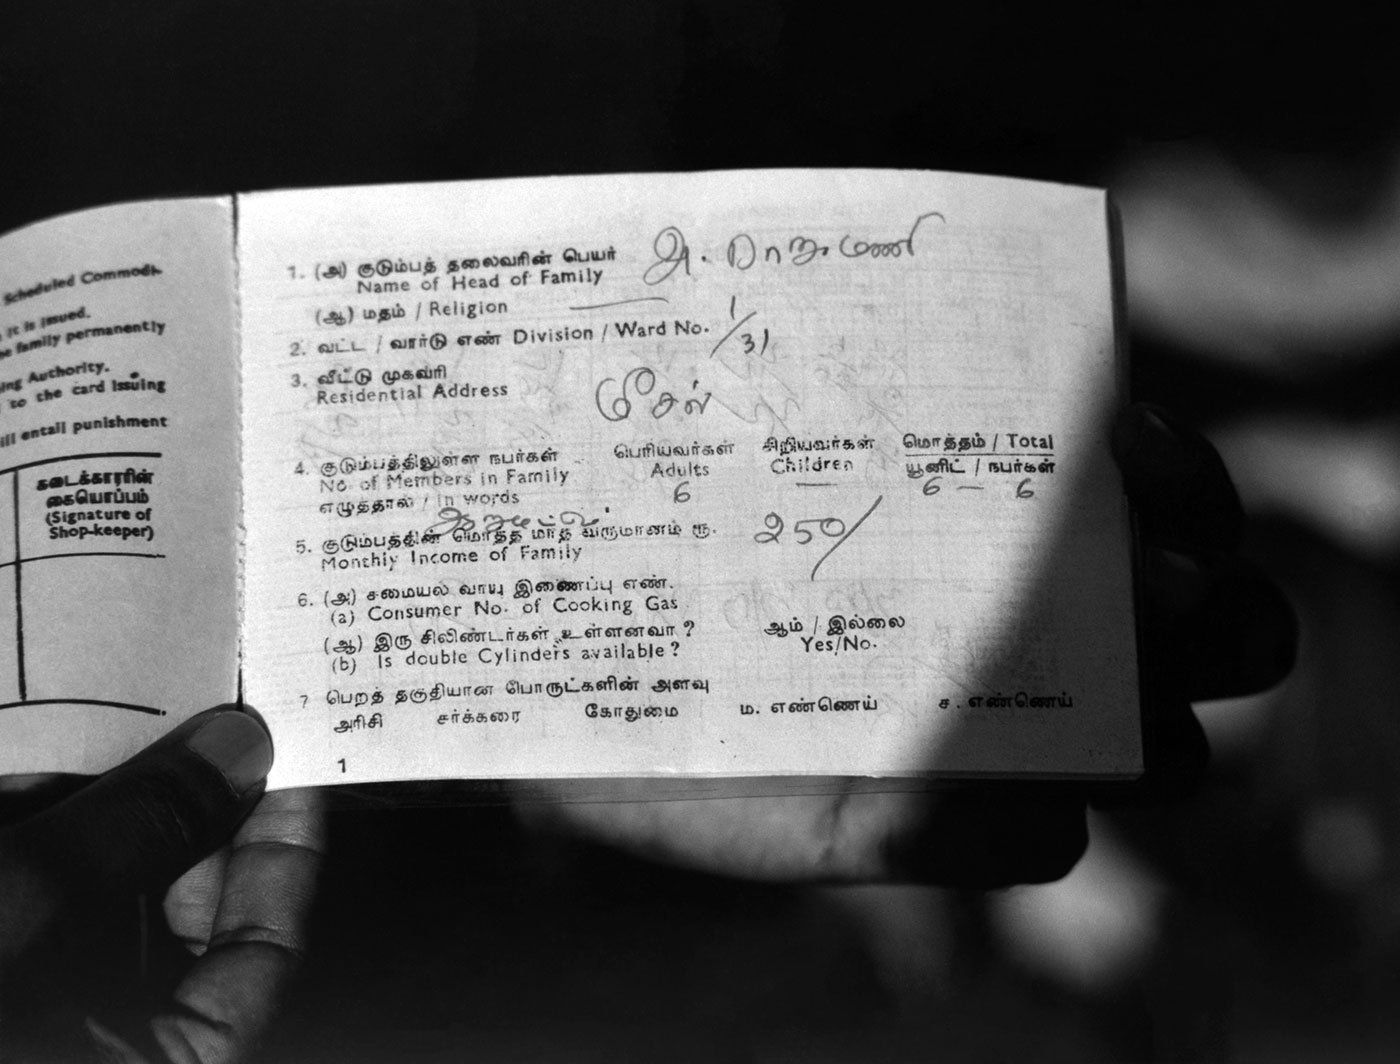 Scheduled Commodi-
it is issued.
family permanently
Authority.
to the card Issuing
entail punishment
கடைக்காரரின்
கையொப்பம்
(Signature of
Shop-keeper)
1. (அ) குடும்பத் தலைவரின் பெயர்
Name of Head of Family
(ஆ) மதம் / Religion
2. வட்ட / வார்டு எண் Division / Ward No. 1/31
3. வீட்டு முகவரி
Residential Address
4. குடும்பத்திலுள்ள நபர்கள் பெரியவர்கள் சிறியவர்கள் மொத்தம் / Total
No. of Members in Family Adults Children யூனிட் / நபர்கள்
எழுத்தால் / in words 6 — 6 — 6
5. குடும்பத்தின் மொத்த மாத வருமானம் ரூ. 250/
Monthly Income of Family
6. (அ) சமையல் வாயு இணைப்பு எண்.
(a) Consumer No. of Cooking Gas
(ஆ) இரு சிலிண்டர்கள் உள்ளனவா ? ஆம் / இல்லை
(b) Is double Cylinders available ? Yes/No.
7 பெறத் தகுதியான பொருட்களின் அளவு
அரிசி சர்க்கரை கோதுமை ம. எண்ணெய் ச. எண்ணெய்
1